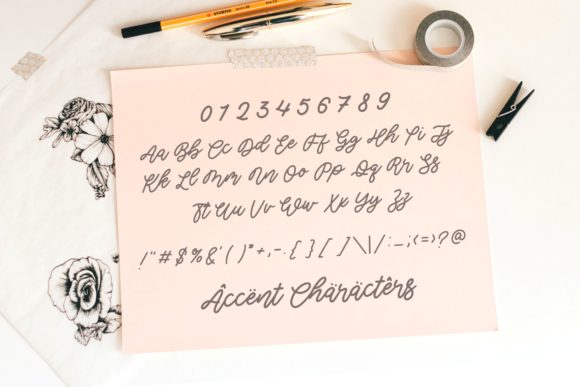 0 1 2 3 4 5 6 7 8 9
Aa Bb Cc Dd Ee Ff Gg Hh Ii Jj
Kk Ll Mm Nn Oo Pp Qq Rr Ss
Tt Uu Vv Ww Xx Yy Zz
! " # $ % & ' ( ) * + , - . { } [ ] \ | / : _ ; < = > ? @
Âccënt Chäräctêrs